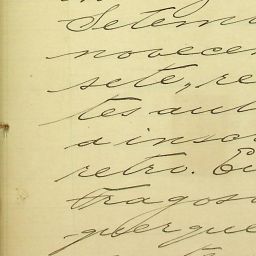 Setem
novece
sete, re
tes aut
a inso
retro. Eu
Fragoso
querque